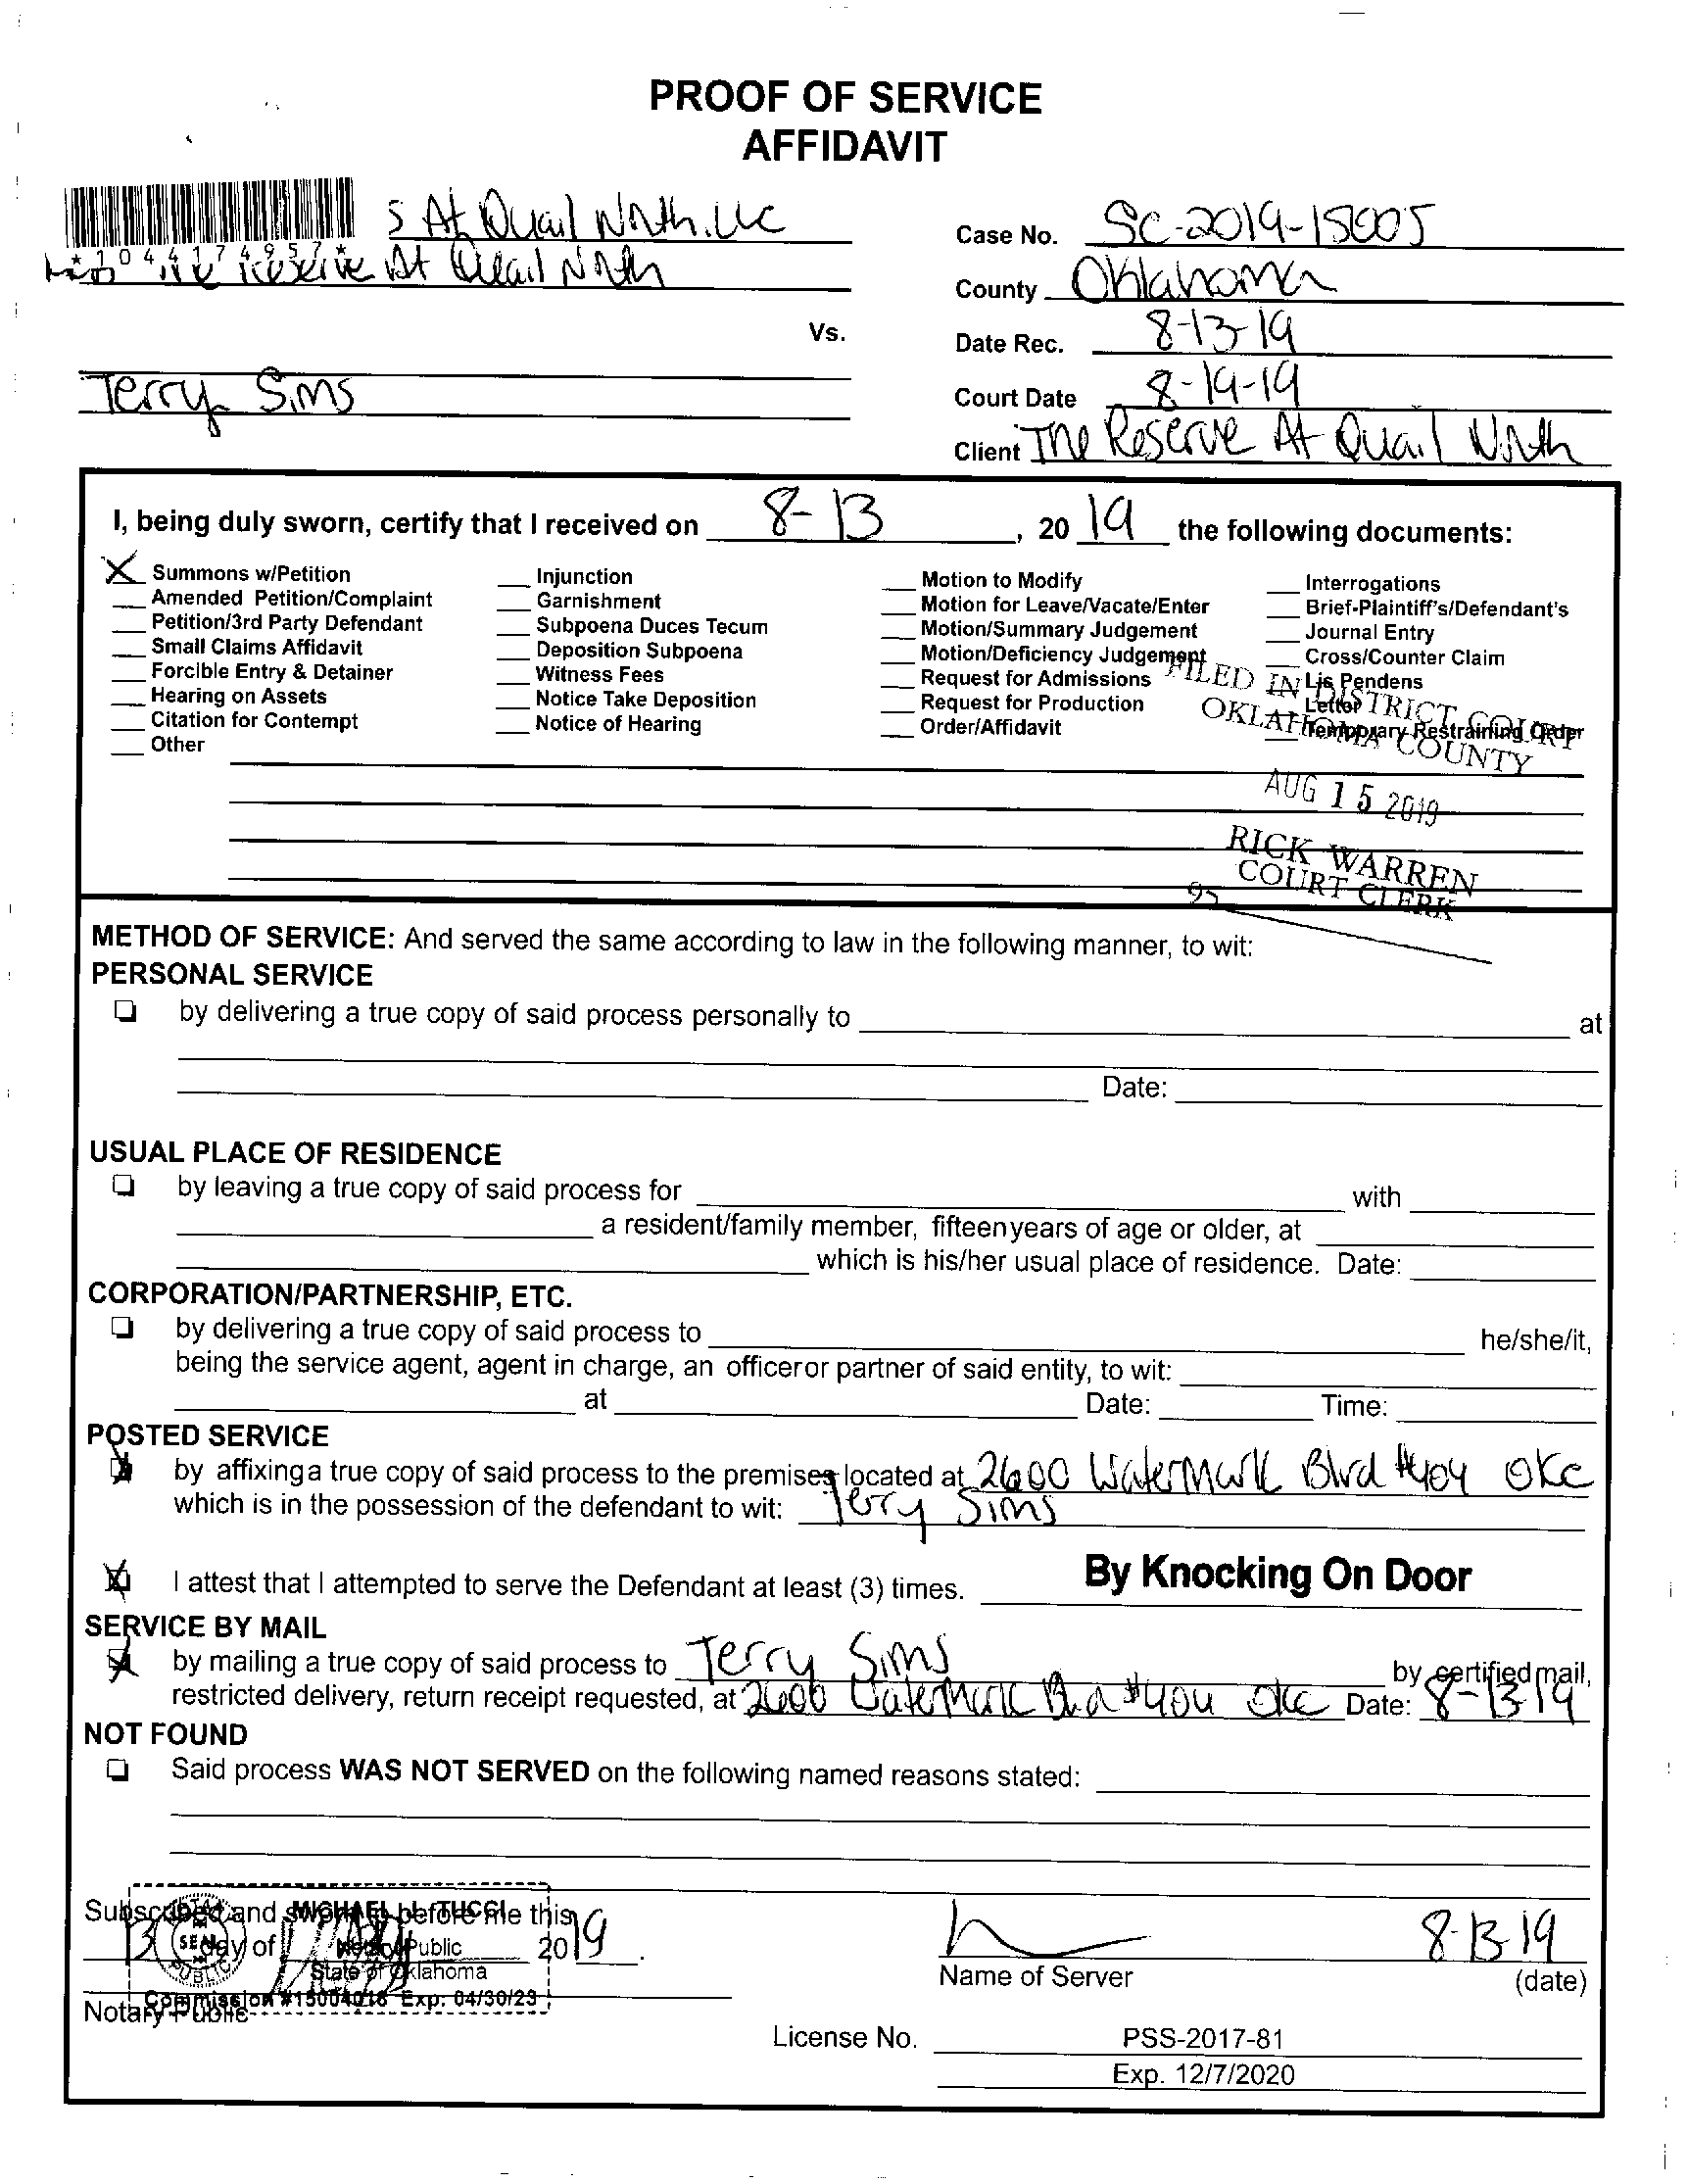 PROOF OF SERVICE
AFFIDAVIT
*1044174957*
S At Quail North, LLC
Reserve At Quail North
Vs.
Terry Sims
Case No. SC-2019-15005
County Oklahoma
Date Rec. 8-13-19
Court Date 8-19-19
Client The Reserve At Quail North
I, being duly sworn, certify that I received on 8-13, 2019 the following documents:
X Summons w/Petition
Amended Petition/Complaint
Petition/3rd Party Defendant
Small Claims Affidavit
Forcible Entry & Detainer
Hearing on Assets
Citation for Contempt
Other
Injunction
Garnishment
Subpoena Duces Tecum
Deposition Subpoena
Witness Fees
Notice Take Deposition
Notice of Hearing
Motion to Modify
Motion for Leave/Vacate/Enter
Motion/Summary Judgement
Motion/Deficiency Judgement
Request for Admissions
Request for Production
Order/Affidavit
Interrogations
Brief-Plaintiff's/Defendant's
Journal Entry
Cross/Counter Claim
Lis Pendens
Letter
Temporary Restraining Order
FILED IN DISTRICT COURT
OKLAHOMA COUNTY
AUG 15 2019
RICK WARREN
COURT CLERK
METHOD OF SERVICE: And served the same according to law in the following manner, to wit:
PERSONAL SERVICE
by delivering a true copy of said process personally to at
Date:
USUAL PLACE OF RESIDENCE
by leaving a true copy of said process for with
a resident/family member, fifteenyears of age or older, at
which is his/her usual place of residence. Date:
CORPORATION/PARTNERSHIP, ETC.
by delivering a true copy of said process to he/she/it,
being the service agent, agent in charge, an officeror partner of said entity, to wit:
at Date: Time:
POSTED SERVICE
by affixinga true copy of said process to the premises located at 2600 Watermark Blvd #404 OKC
which is in the possession of the defendant to wit: Terry Sims
I attest that I attempted to serve the Defendant at least (3) times. By Knocking On Door
SERVICE BY MAIL
by mailing a true copy of said process to Terry Sims by certified mail,
restricted delivery, return receipt requested, at 2600 Watermark Blvd #404 OKC Date: 8-13-19
NOT FOUND
Said process WAS NOT SERVED on the following named reasons stated:
Subscribed and sworn to before me this
13 day of 2019.
Notary Public
MICHAEL L. TUCCI
Notary Public
State of Oklahoma
Commission #15004016 Exp: 04/30/23
NOTARY PUBLIC SEAL
8-13-19
Name of Server (date)
License No. PSS-2017-81
Exp. 12/7/2020